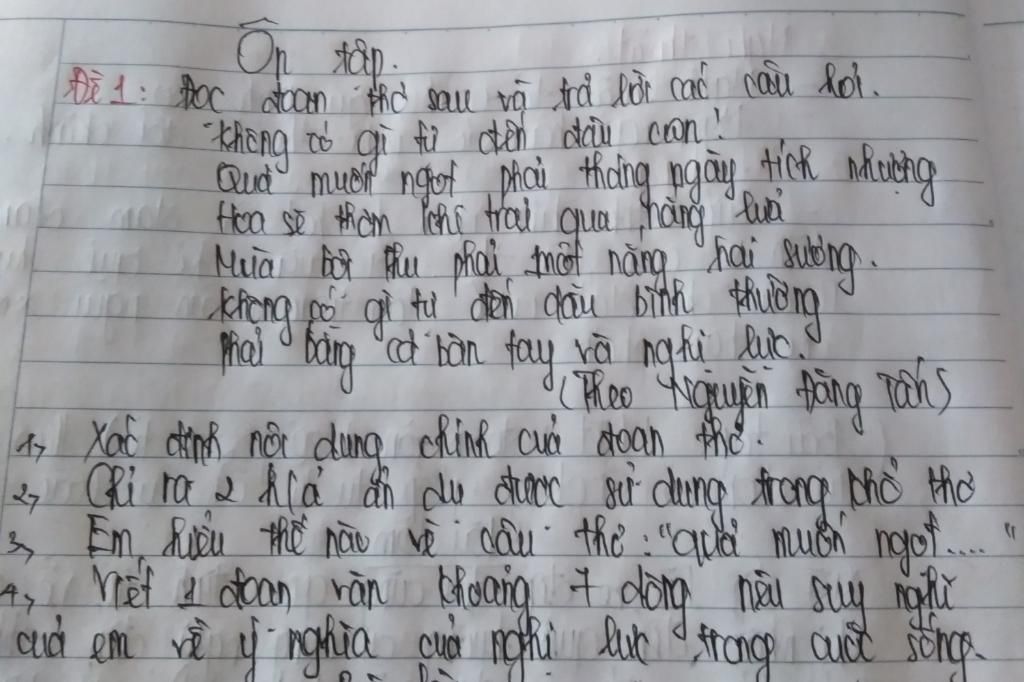 Ôn tập.
Đề 1: Đọc đoạn thơ sau và trả lời các câu hỏi.
"Không có gì tự đến đâu con!
Quả muốn ngọt phải tháng ngày tích nhượng
Hoa sẽ thơm khi trải qua nắng lửa
Mùa bội thu phải một nắng hai sương.
Không có gì tự đến dẫu bình thường
Phải bằng cả bàn tay và nghị lực.
(Theo Nguyễn Đăng Tấn)
1, Xác định nội dung chính của đoạn thơ.
2, Chỉ ra 2 h/ả ẩn dụ được sử dụng trong khổ thơ
3, Em hiểu thế nào về câu thơ: "Quả muốn ngọt...."
4, Viết 1 đoạn văn khoảng 7 dòng nêu suy nghĩ
của em về ý nghĩa của nghị lực trong cuộc sống.